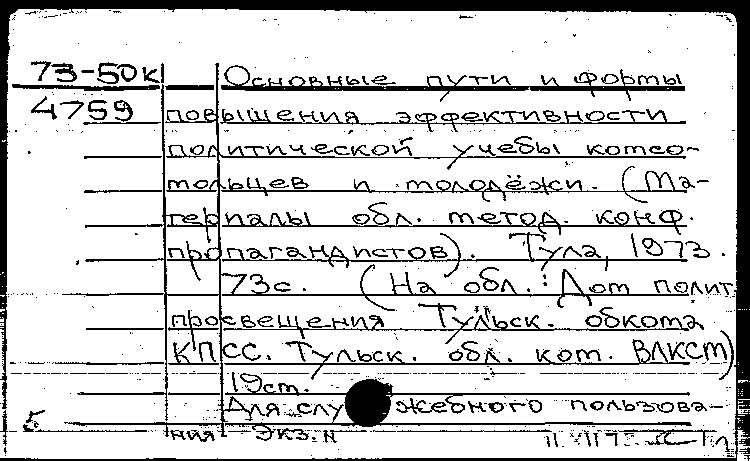 73-50к Основные пути и формы
4759 повышения эффективности
политической учебы комсо-
мольцев и молодёжи. (Ма-
териалы обл. метод. конф.
пропагандистов). Тула, 1973.
73с. (На обл.: Дом полит
просвещения Тульск. обкома
КПСС. Тульск. обл. ком. ВЛКСМ)
19см.
Для служебного пользова-
5
ния Экз. N